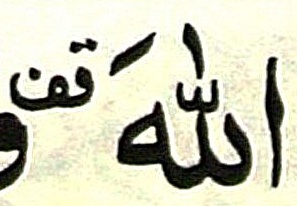 اللّٰهَ قف